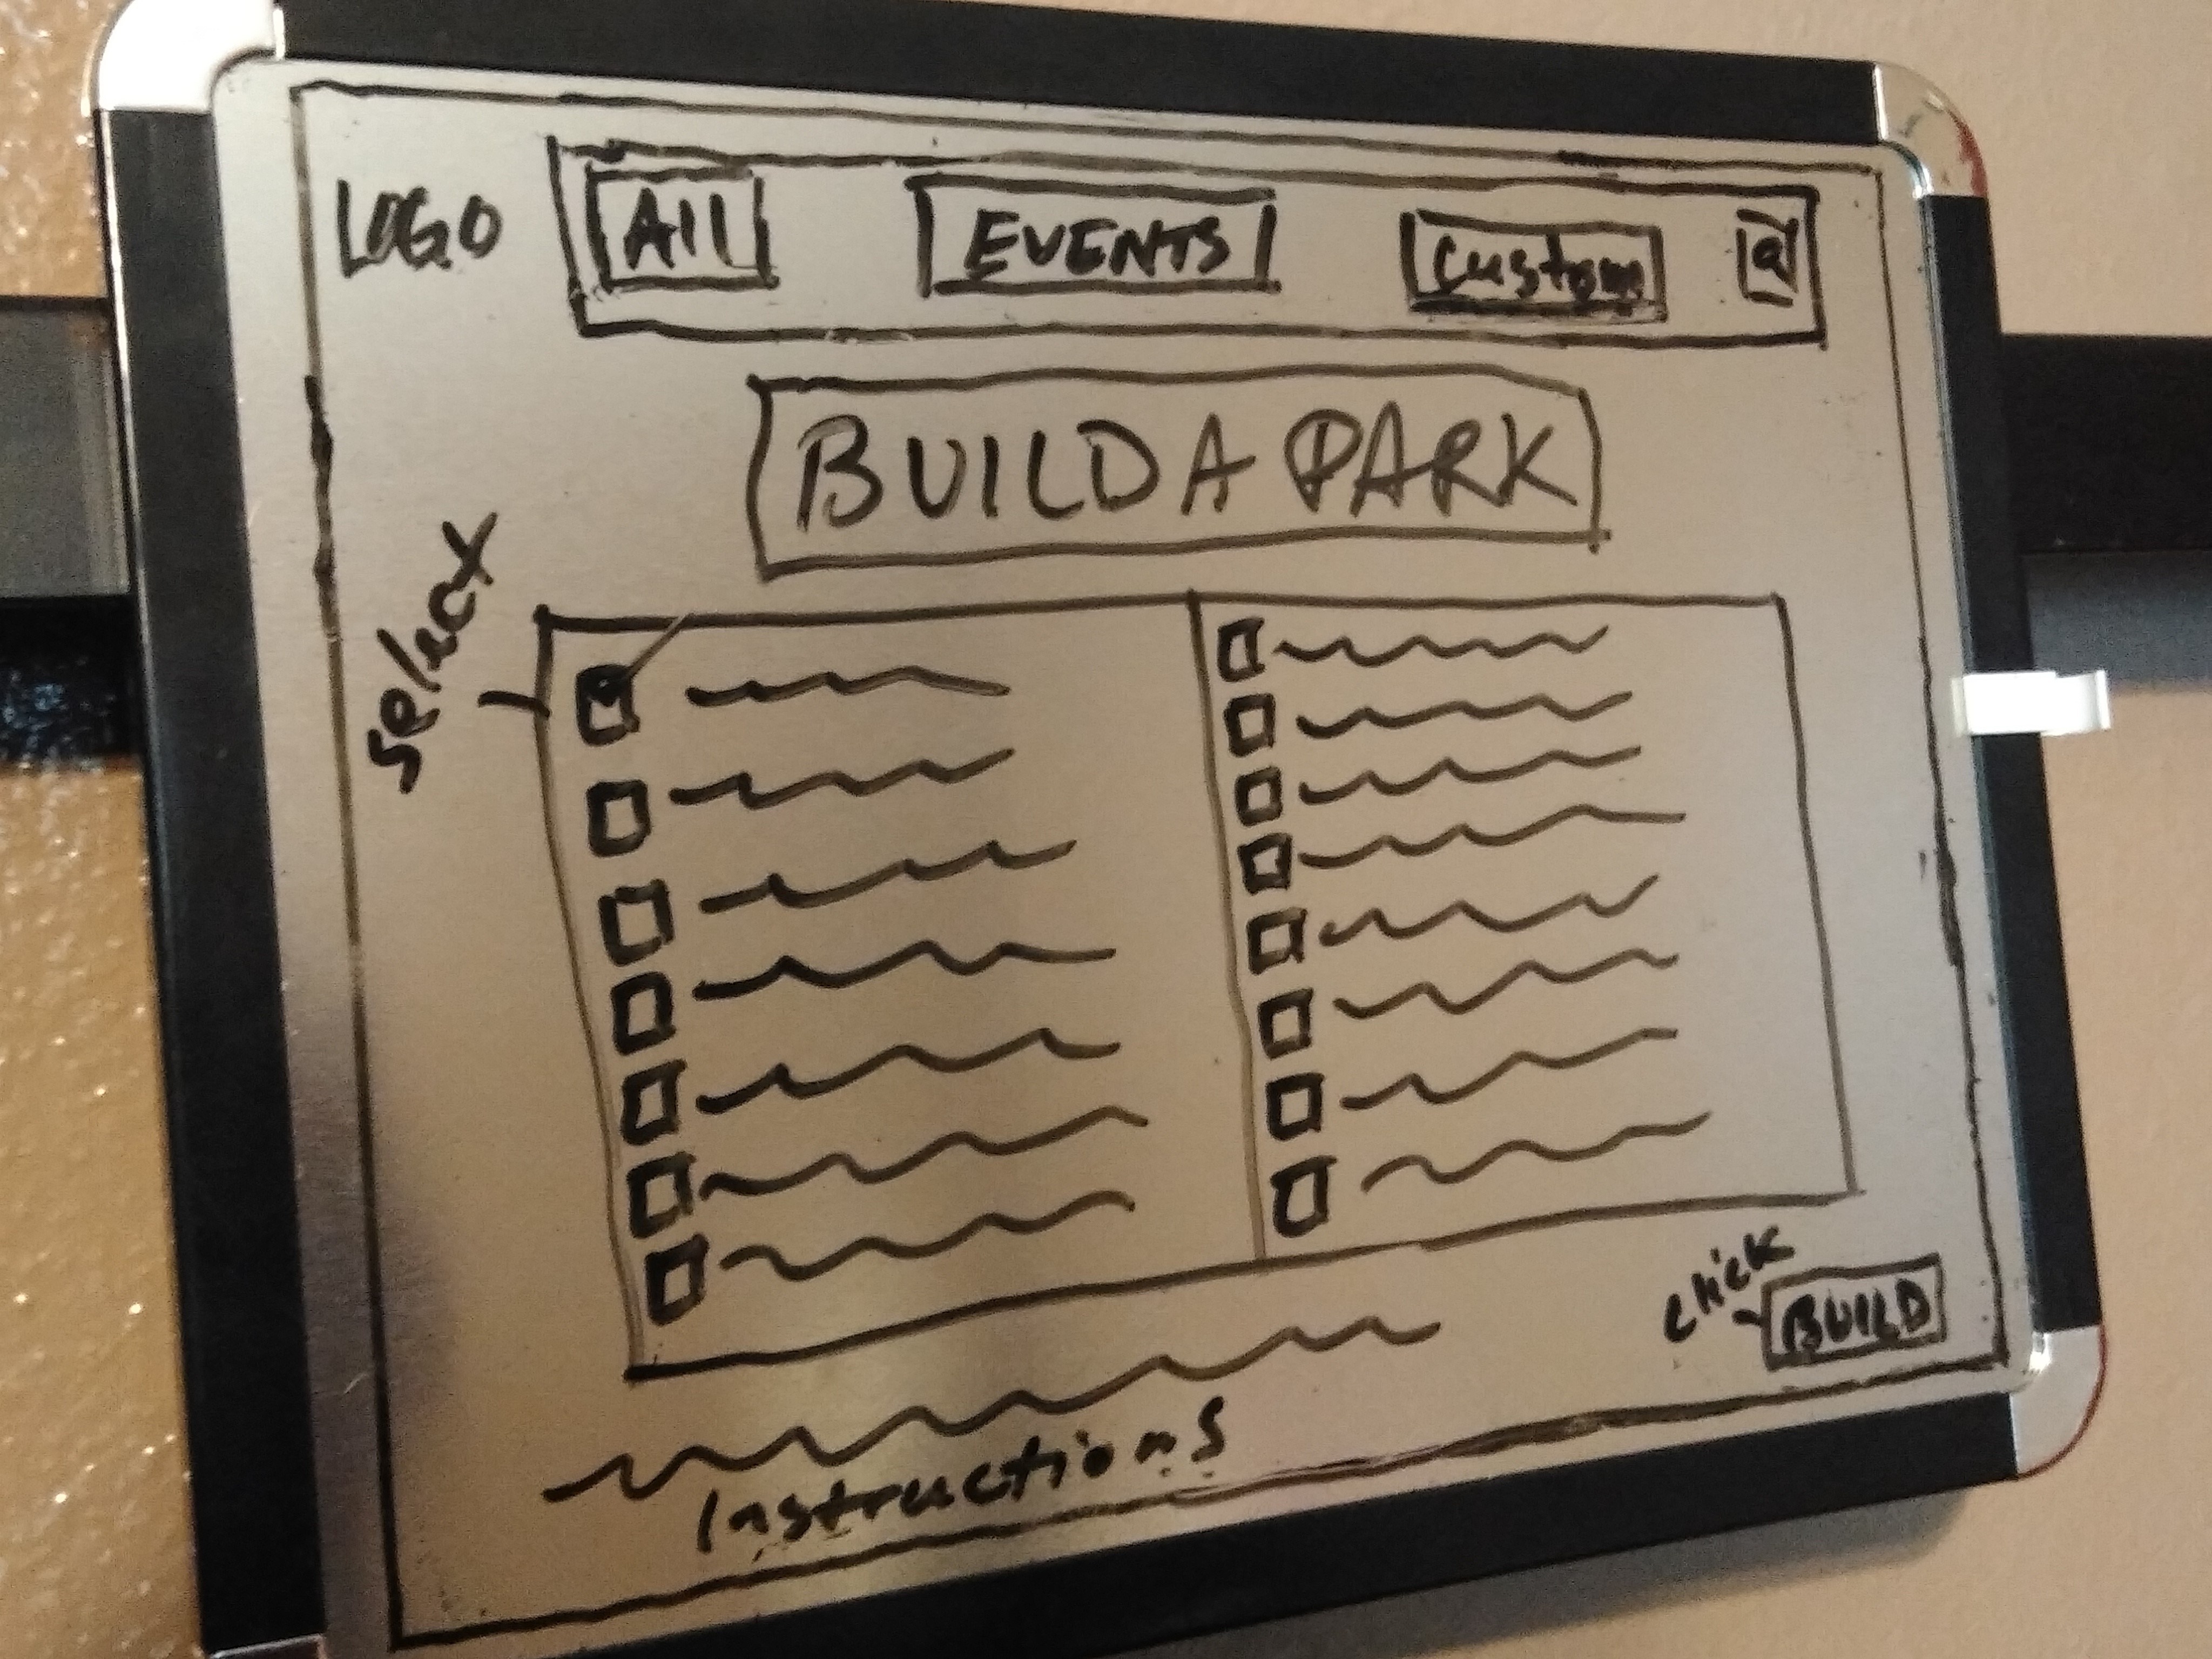 LOGO
All
EVENTS
Custom
BUILD A PARK
Select
click
BUILD
Instructions